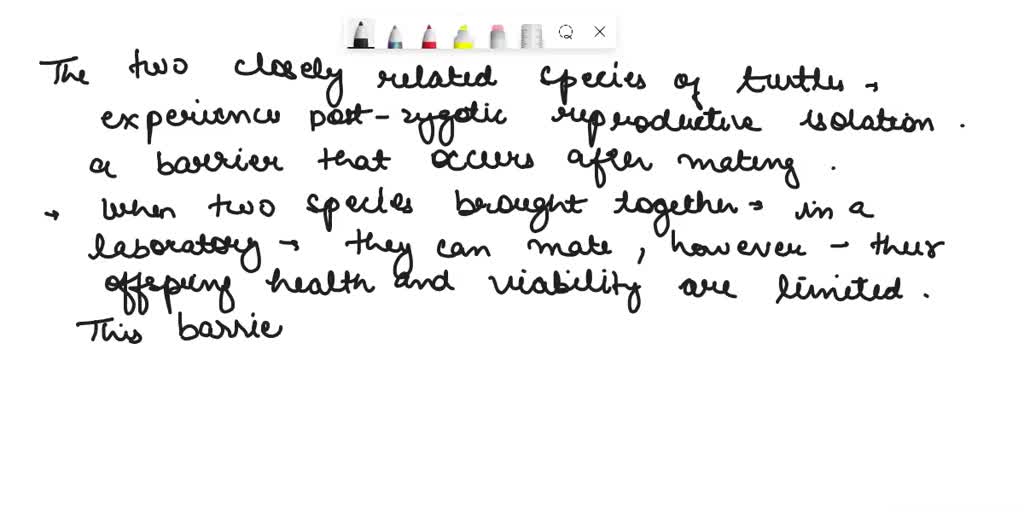 The two closely related species of turtles →
experience post-zygotic reproductive isolation.
a barrier that occurs after mating.
→ When two species brought together → in a
laboratory → they can mate, however - their
offspring health and viability are limited.
This barrie